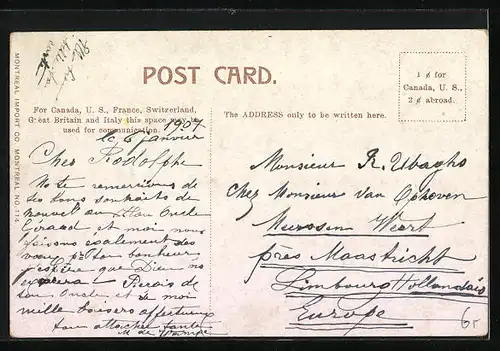 MONTREAL IMPORT CO. MONTREAL NO. 114
POST CARD.
1 ¢ for
Canada, U. S.,
2 ¢ abroad.
For Canada, U. S., France, Switzerland,
Great Britain and Italy this space may be
used for communication.
The ADDRESS only to be written here.
1907
le 6 janvier
Cher Rodolphe
de
tes bons souhaits de
nouvel an Oncle
et moi nous
faisons également des
voeux pr ton bonheur
j'espère que Dieu
Reçois de
ton Oncle et de moi
mille baisers affectueux
ton attachée tante
M de
Monsieur R. Ubaghs
Chez Monsieur Van Ophoven
Meerssen Weert
près Maastricht
Limbourg Hollandais
Europe
6.-